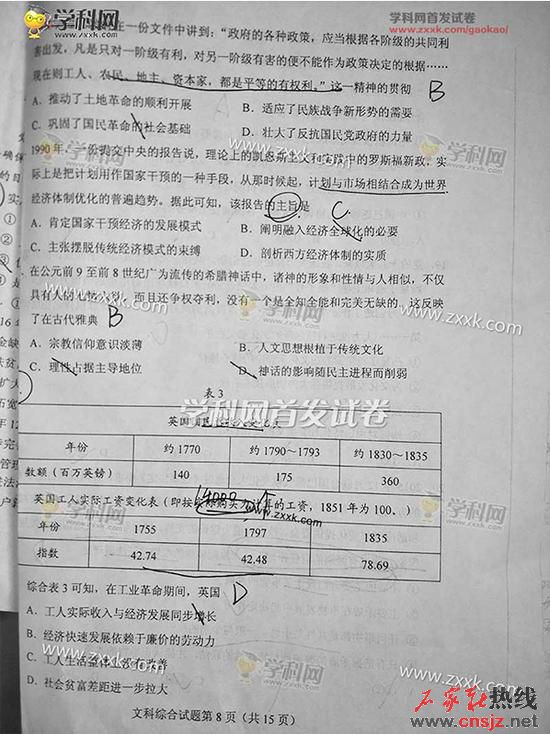 学科网首发试卷
https://www.zxxk.com/gaokao/
在一份文件中讲到：“政府的各种政策，应当根据各阶级的共同利
害出发，凡是只对一阶级有利，对另一阶级有害的便不能作为政策决定的根据……
现在则工人、农民、地主、资本家，都是平等的有权利。”这一精神的贯彻 B
A．推动了土地革命的顺利开展 B．适应了民族战争新形势的需要
C．巩固了国民革命的社会基础 D．壮大了反抗国民党政府的力量
1990年，一份提交中央的报告说，理论上的凯恩斯主义和实践中的罗斯福新政，实
际上是把计划用作国家干预的一种手段，从那时候起，计划与市场相结合成为世界
经济体制优化的普遍趋势。据此可知，该报告的主旨是 C
A．肯定国家干预经济的发展模式 B．阐明融入经济全球化的必要
C．主张摆脱传统经济模式的束缚 D．剖析西方经济体制的实质
在公元前9至前8世纪广为流传的希腊神话中，诸神的形象和性情与人相似，不仅
具有人的 而且还争权夺利，没有一个是全知全能和完美无缺的。这反映
了在古代雅典 B
A．宗教信仰意识淡薄 B．人文思想根植于传统文化
C．理性占据主导地位 D．神话的影响随民主进程而削弱
表3
学科网首发试卷
英国国民
年份 约1770 约1790～1793 约1830～1835
数额（百万英镑） 140 175 360
英国工人实际工资变化表（即按 的工资，1851年为100。）
年份 1755 1797 1835
指数 42.74 42.48 78.69
综合表3可知，在工业革命期间，英国 D
A．工人实际收入与经济发展同步增长
B．经济快速发展依赖于廉价的劳动力
C．工人生活整体上 改善
D．社会贫富差距进一步拉大
文科综合试题第8页（共15页）
学科网
www.zxxk.com
热线
www.cnsjz.net